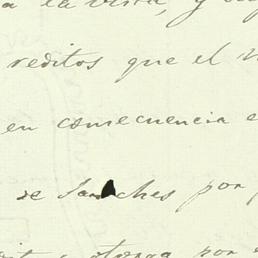 a la vista, y
reditos que el
en consecuencia e
de Sanches por
otorga por